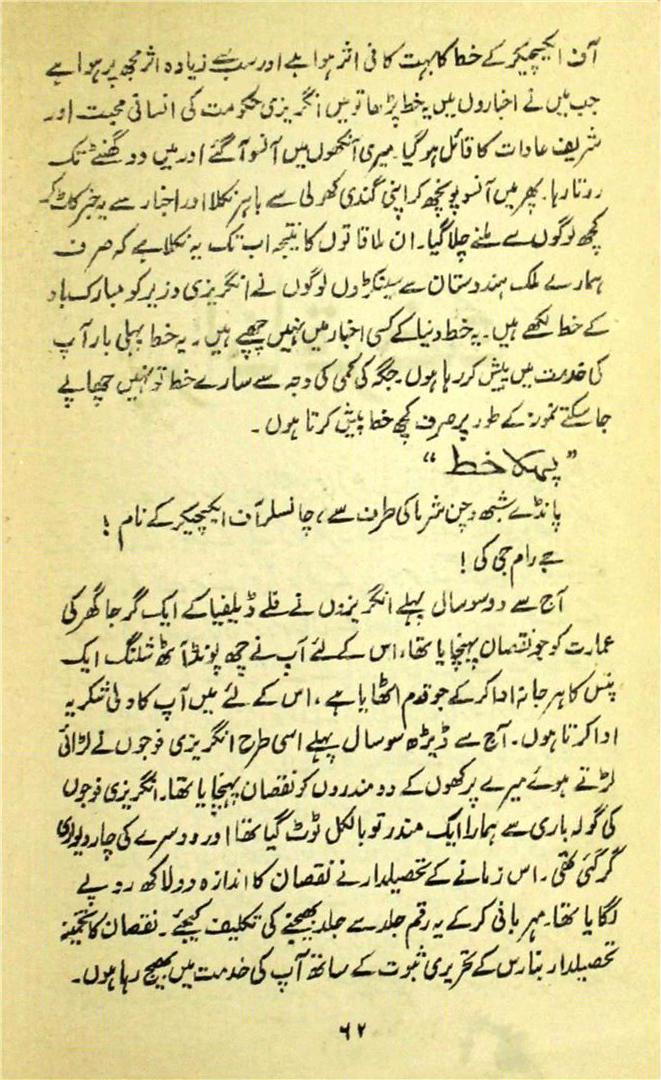 آف ایکیچیکر کے خط کا بہت کافی اثر ہوا ہے اور سب سے زیادہ اثر مجھ پر ہوا ہے
جب میں نے اخباروں میں یہ خط پڑھا تو میں انگریزی حکومت کی انسانی محبت اور
شریف عادات کا قائل ہو گیا۔ میری آنکھوں میں آنسو آ گئے اور میں دو گھنٹے تک
روتا رہا۔ پھر میں آنسو پونچھ کر اپنی گندی کھولی سے باہر نکلا اور اخبار سے یہ خبر کاٹ کر
کچھ لوگوں سے ملنے چلا گیا۔ ان ملاقاتوں کا نتیجہ اب تک یہ نکلا ہے کہ صرف
ہمارے ملک ہندوستان سے سینکڑوں لوگوں نے انگریزی وزیر کو مبارک باد
کے خط لکھے ہیں۔ یہ خط دنیا کے کسی اخبار میں نہیں چھپے ہیں۔ یہ خط پہلی بار آپ
کی خدمت میں پیش کر رہا ہوں۔ جگہ کی کمی کی وجہ سے سارے خط تو نہیں چھاپے
جا سکتے نمونے کے طور پر صرف کچھ خط پیش کرتا ہوں۔
"پہلا خط"
پانڈے شبھ وچن شرما کی طرف سے، چانسلر آف ایکیچیکر کے نام!
جے رام جی کی!
آج سے دو سو سال پہلے انگریزوں نے فلے ڈیلفیا کے ایک گرجا گھر کی
عمارت کو جو نقصان پہنچایا تھا، اس کے لئے آپ نے چھ پونڈ آٹھ شلنگ ایک
پنس کا ہرجانہ ادا کر کے جو قدم اٹھایا ہے، اس کے لئے میں آپ کا دلی شکریہ
ادا کرتا ہوں۔ آج سے ڈیڑھ سو سال پہلے اسی طرح انگریزی فوجوں نے لڑائی
لڑتے ہوئے میرے پرکھوں کے دو مندروں کو نقصان پہنچایا تھا۔ انگریزی فوجوں
کی گولہ باری سے ہمارا ایک مندر تو بالکل ٹوٹ گیا تھا اور دوسرے کی چار دیواری
گر گئی تھی۔ اس زمانے کے تحصیلدار نے نقصان کا اندازہ دو لاکھ روپے
لگایا تھا۔ مہربانی کر کے یہ رقم جلد سے جلد بھیجنے کی تکلیف کیجئے۔ نقصان کا تخمینہ
تحصیلدار بنارس کے تحریری ثبوت کے ساتھ آپ کی خدمت میں بھیج رہا ہوں۔
۶۲